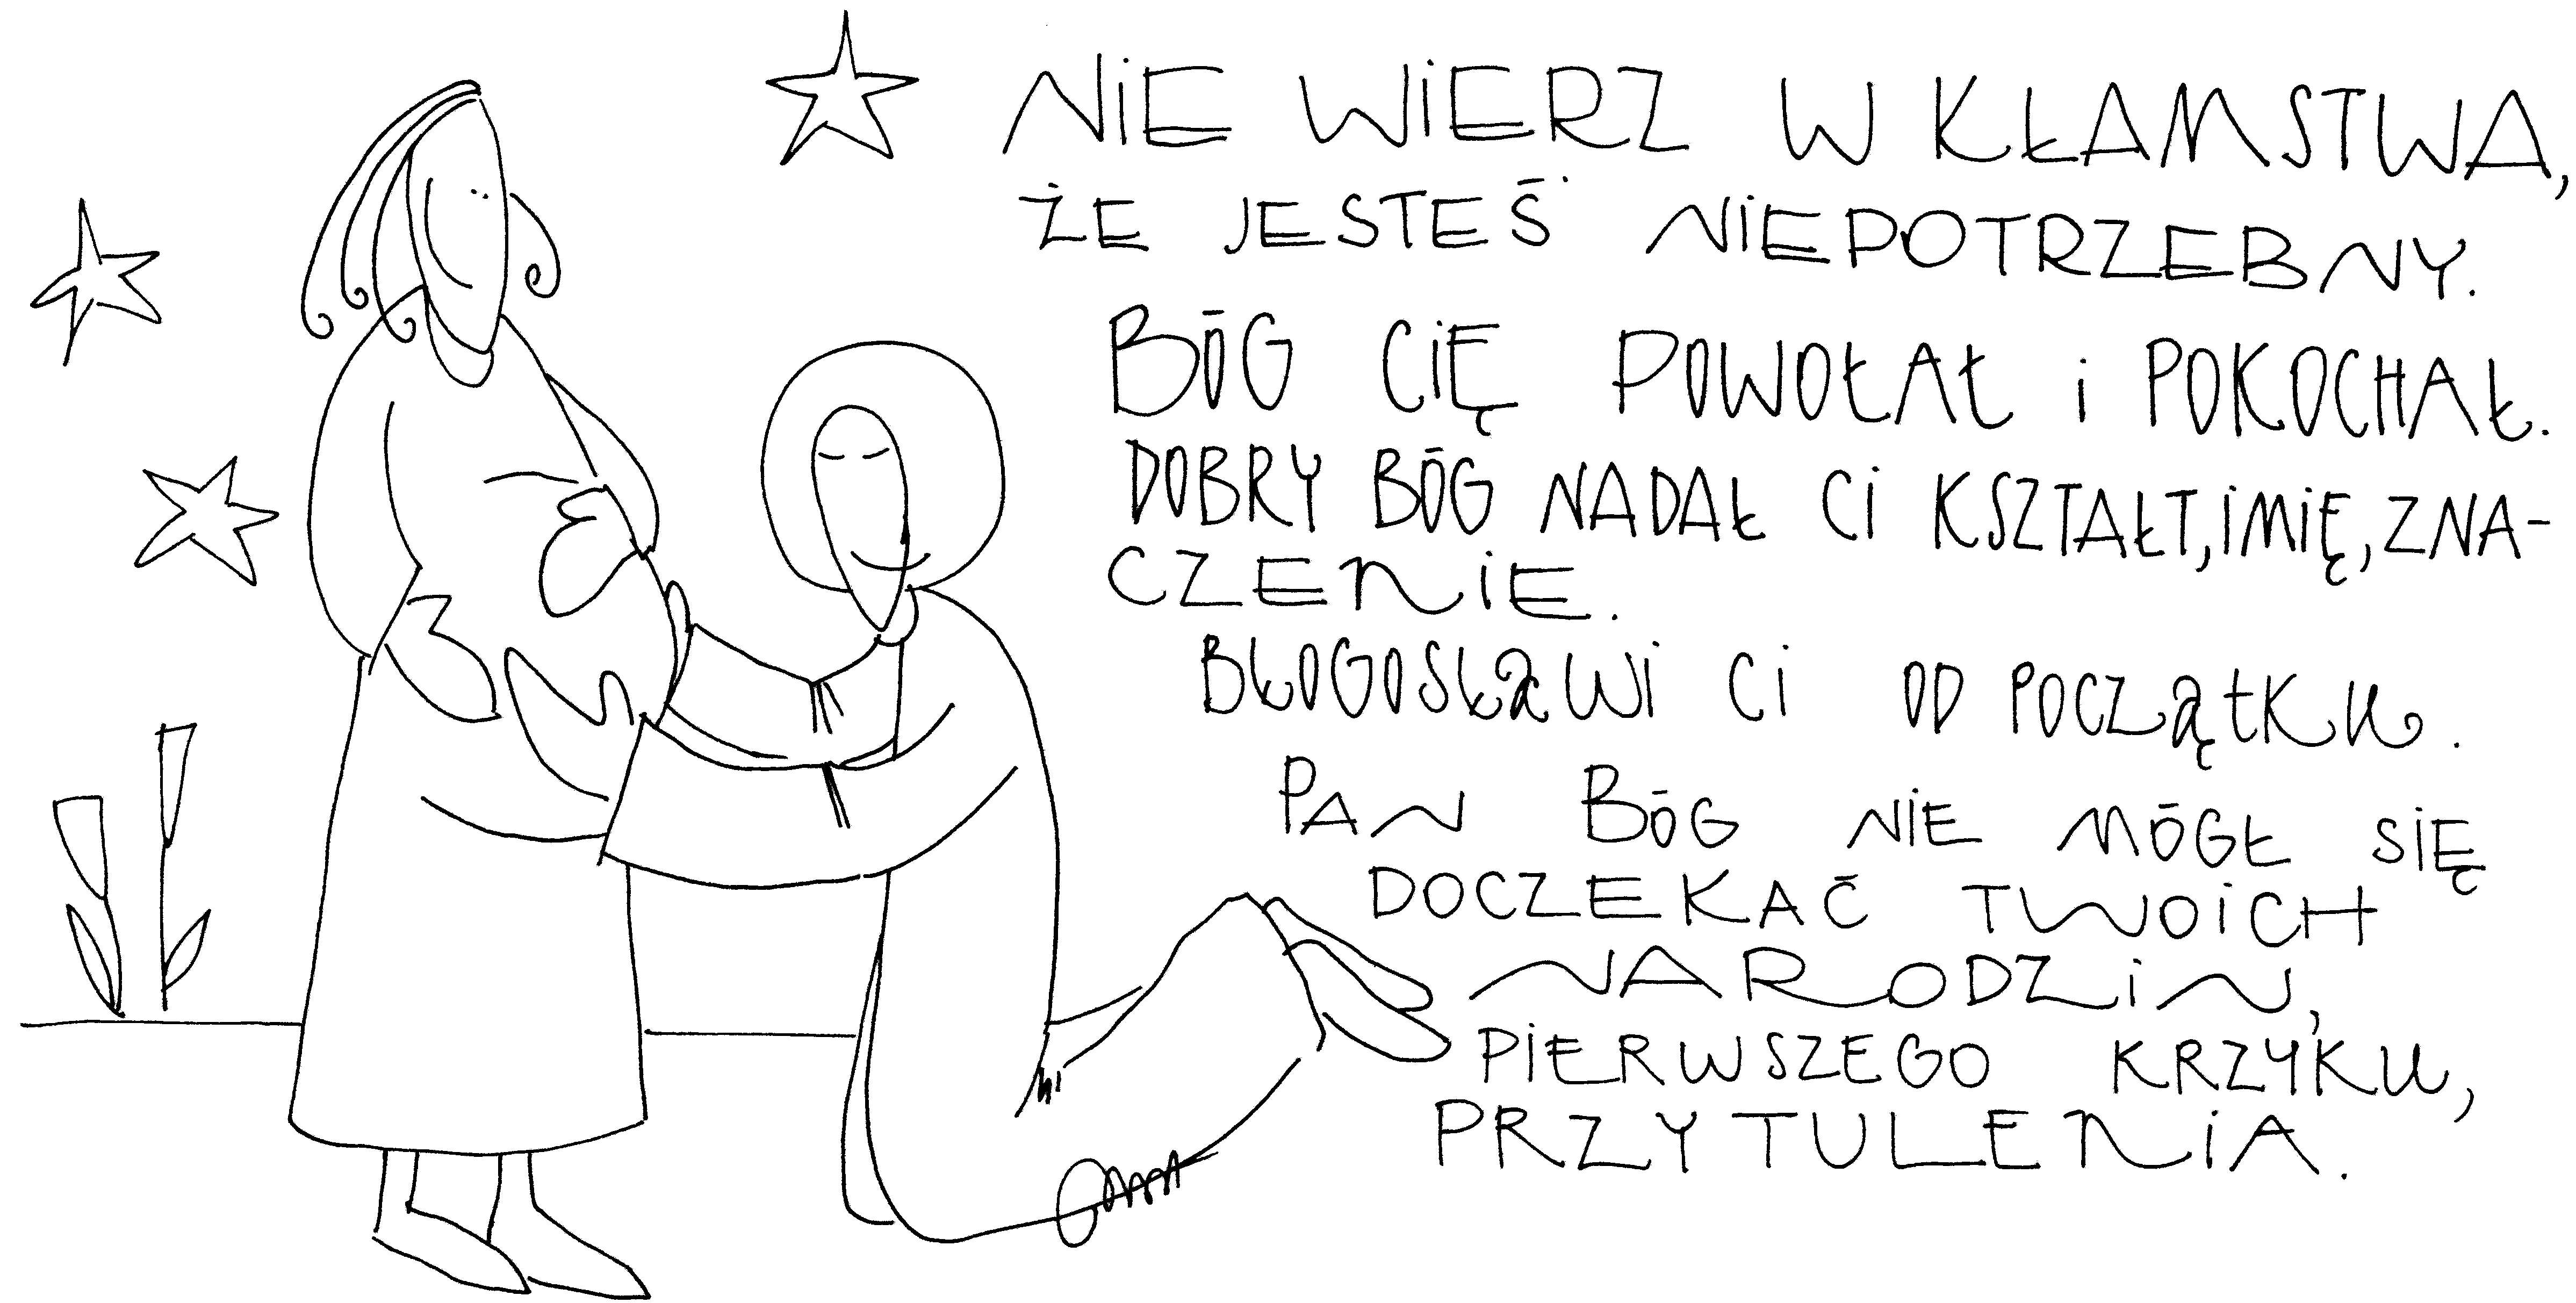 NIE WIERZ W KŁAMSTWA,
ŻE JESTEŚ NIEPOTRZEBNY.
BÓG CIĘ POWOŁAŁ i POKOCHAŁ.
DOBRY BÓG NADAŁ CI KSZTAŁT, IMIĘ, ZNA-
CZENIE.
BŁOGOSŁAWI CI OD POCZĄTKU.
PAN BÓG NIE MÓGŁ SIĘ
DOCZEKAĆ TWOICH
NARODZIN,
PIERWSZEGO KRZYKU,
PRZYTULENIA.